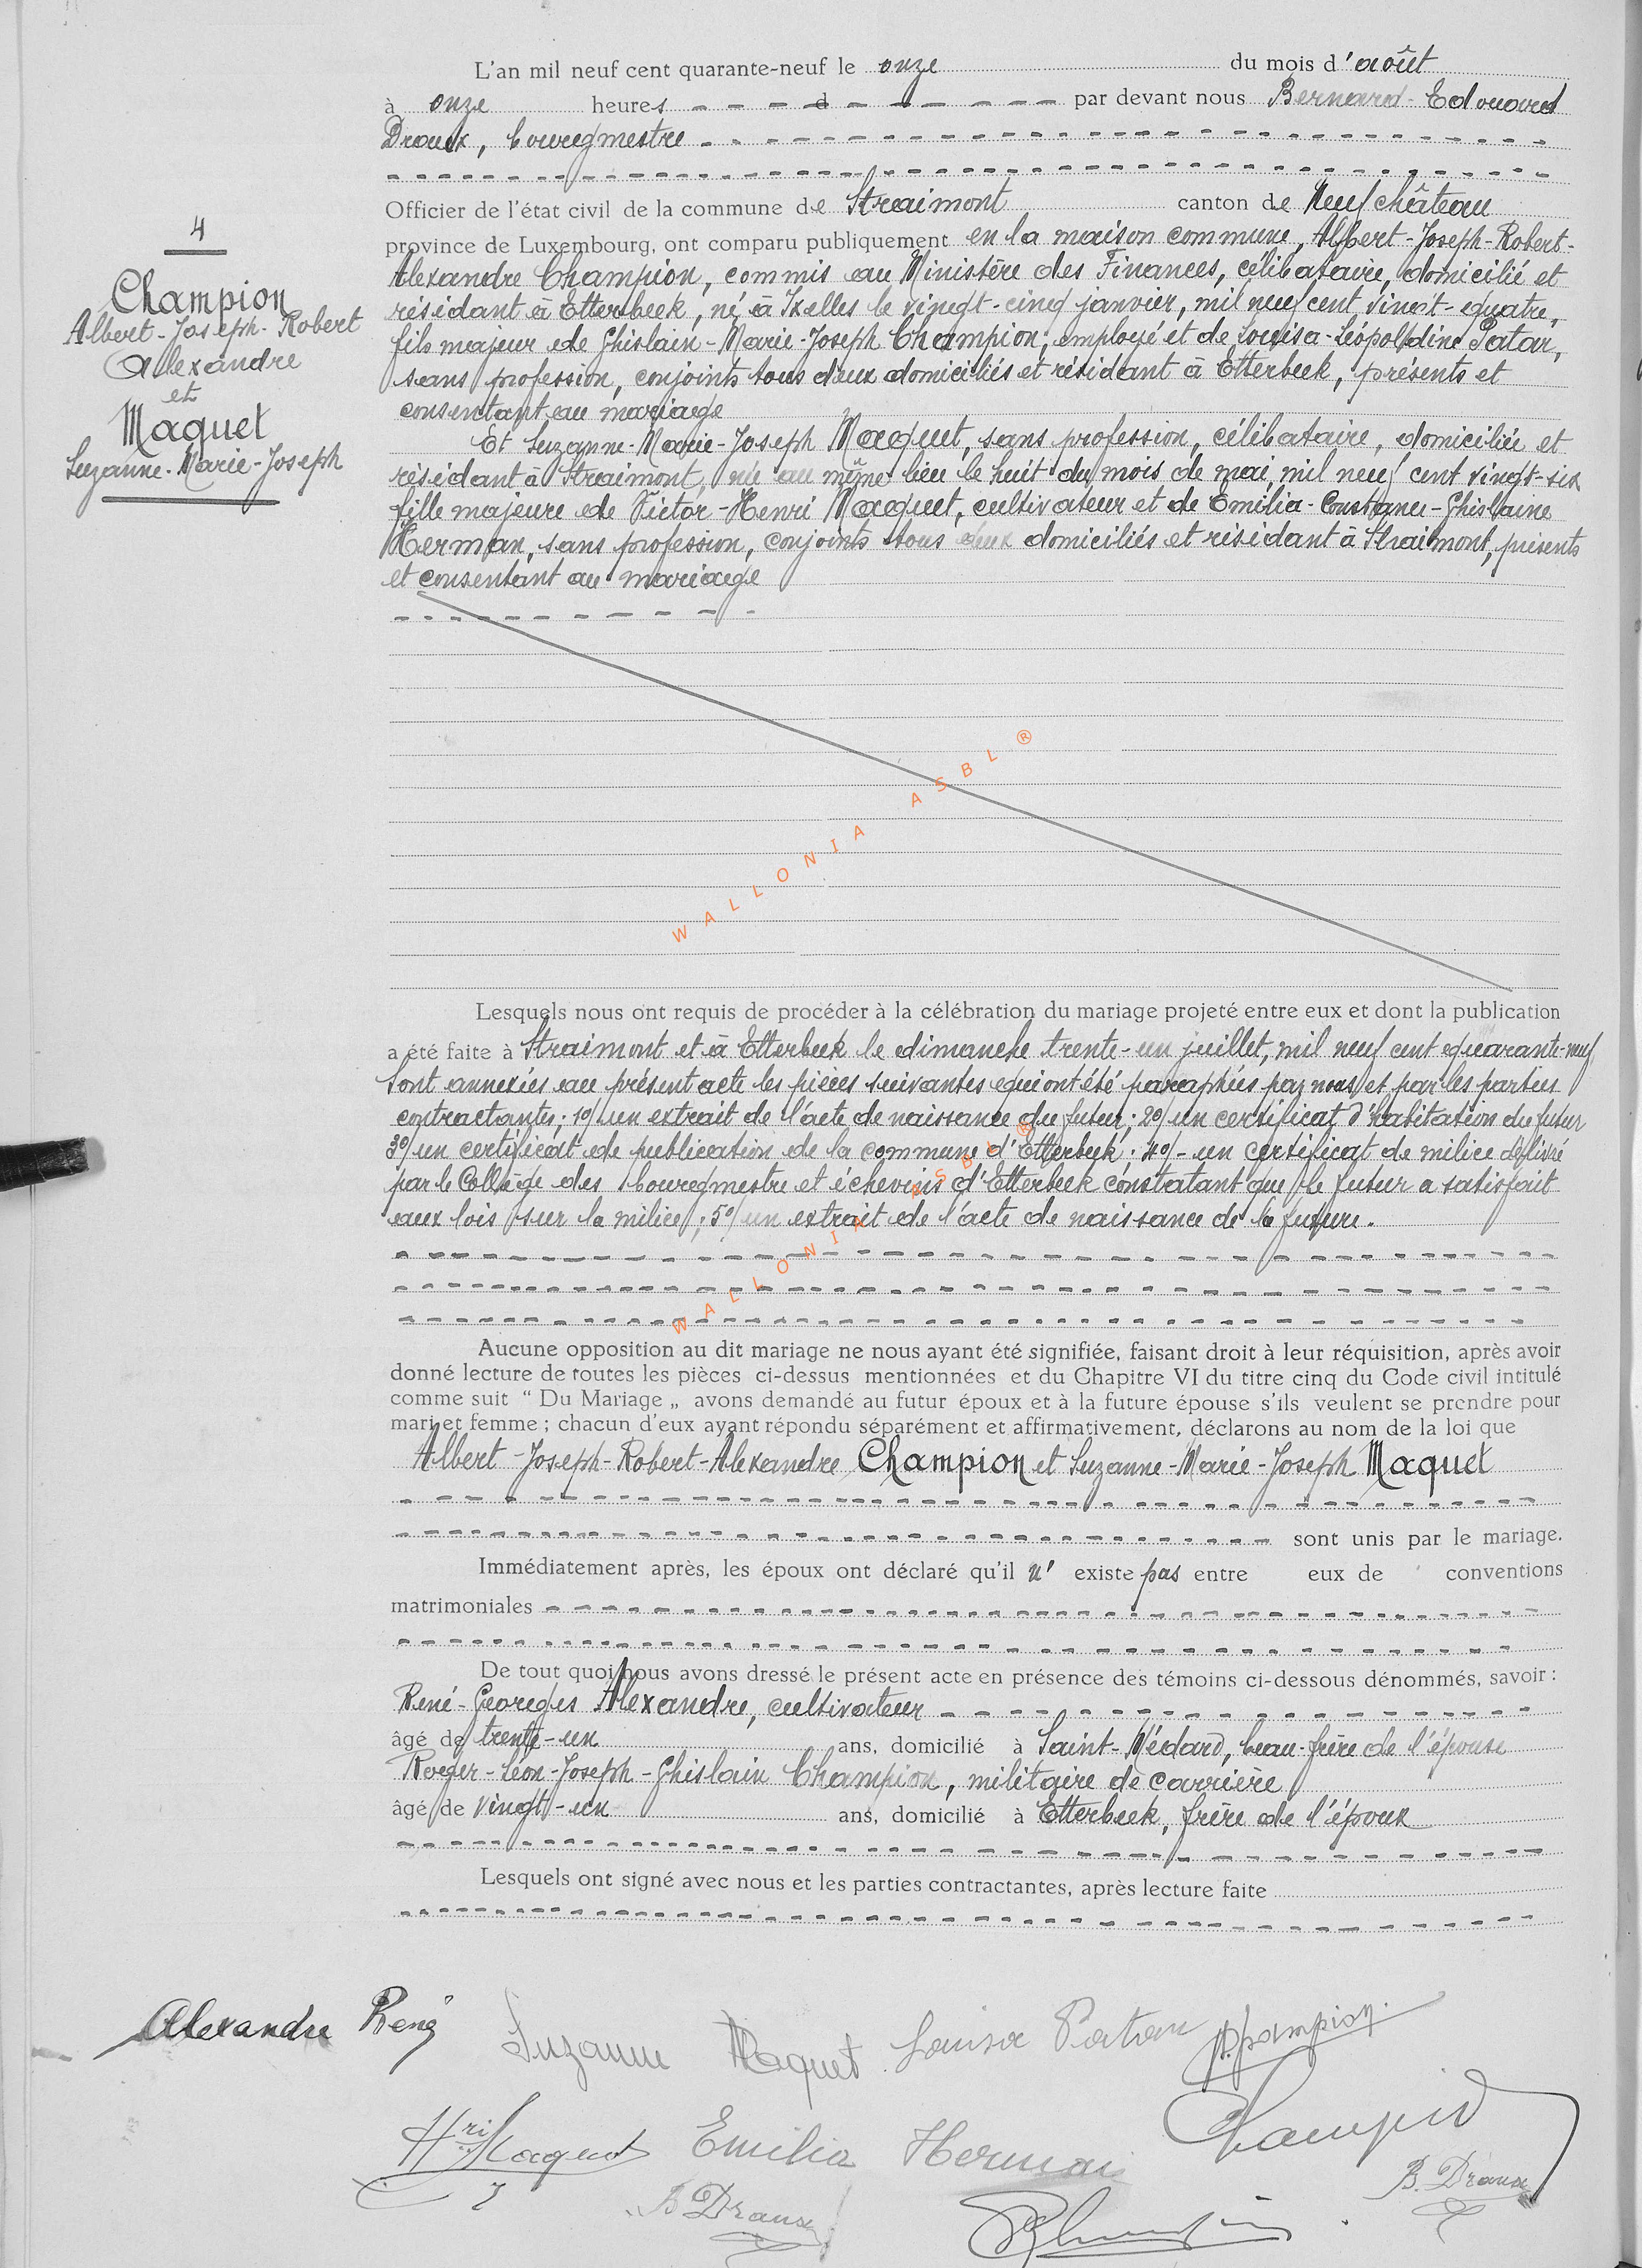 L'an mil neuf cent quarante-neuf le onze du mois d'août
à onze heures d par devant nous Bernard-Edouard
Draux, bourgmestre
Officier de l'état civil de la commune de Straimont canton de Neufchâteau
province de Luxembourg, ont comparu publiquement en la maison commune, Albert-Joseph-Robert-
Alexandre Champion, commis au Ministère des Finances, célibataire, domicilié et
résidant à Etterbeek, né à Ixelles le vingt-cinq janvier, mil neuf cent vingt-quatre,
fils majeur de Ghislain-Marie-Joseph Champion, employé et de Louisa-Léopoldine Patar,
sans profession, conjoints tous deux domiciliés et résidant à Etterbeek, présents et
consentant au mariage
Et Suzanne-Marie-Joseph Maquet, sans profession, célibataire, domiciliée et
résidant à Straimont, née au même lieu le huit du mois de mai, mil neuf cent vingt-six
fille majeure de Victor-Henri Maquet, cultivateur et de Emilia-Constance-Ghislaine
Herman, sans profession, conjoints tous deux domiciliés et résidant à Straimont, présents
et consentant au mariage
4
Champion
Albert-Joseph-Robert
Alexandre
et
Maquet
Suzanne-Marie-Joseph
WALLONIA ASBL ®
Lesquels nous ont requis de procéder à la célébration du mariage projeté entre eux et dont la publication
a été faite à Straimont et à Etterbeek le dimanche trente-un juillet, mil neuf cent quarante-neuf
Sont annexées au présent acte les pièces suivantes qui ont été paraphées par nous et par les parties
contractantes; 1°/ un extrait de l'acte de naissance du futur; 2°/ un certificat d'habitation du futur
3°/ un certificat de publication de la commune d'Etterbeek; 4°/- un certificat de milice délivré
par le Collège des bourgmestre et échevins d'Etterbeek constatant que le futur a satisfait
aux lois sur la milice; 5°/ un extrait de l'acte de naissance de la future.
WALLONIA ASBL ®
Aucune opposition au dit mariage ne nous ayant été signifiée, faisant droit à leur réquisition, après avoir
donné lecture de toutes les pièces ci-dessus mentionnées et du Chapitre VI du titre cinq du Code civil intitulé
comme suit “ Du Mariage „ avons demandé au futur époux et à la future épouse s'ils veulent se prendre pour
mari et femme ; chacun d'eux ayant répondu séparément et affirmativement, déclarons au nom de la loi que
Albert-Joseph-Robert-Alexandre Champion et Suzanne-Marie-Joseph Maquet
sont unis par le mariage.
Immédiatement après, les époux ont déclaré qu'il n' existe pas entre eux de conventions
matrimoniales
De tout quoi nous avons dressé le présent acte en présence des témoins ci-dessous dénommés, savoir :
René-Georges Alexandre, cultivateur
âgé de trente-un ans, domicilié à Saint-Médard, beau-frère de l'épouse
Roger-Léon-Joseph-Ghislain Champion, militaire de carrière
âgé de vingt-un ans, domicilié à Etterbeek, frère de l'époux
Lesquels ont signé avec nous et les parties contractantes, après lecture faite
Alexandre René Suzanne Maquet Louisa Patar Champion
Hri Maquet Emilia Herman Champion
B. Draux B. Draux